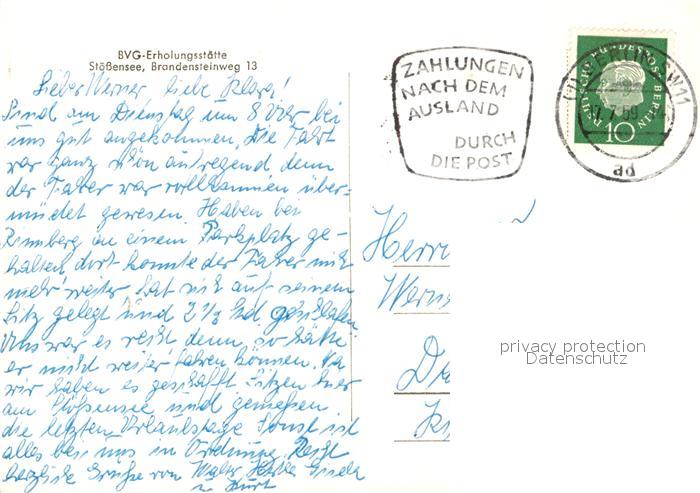 BVG-Erholungsstätte
Stößensee, Brandensteinweg 13
Lieber Werner, liebe Klara!
Sind am Dienstag um 8 Uhr bei
uns gut angekommen, Die Fahrt
war ganz schön aufregend, denn
der Fahrer war vollkommen über-
müdet gewesen. Haben bei
an einem Parkplatz ge-
halten dort konnte der Fahrer nicht
mehr weiter hat sich auf seinem
Sitz gelegt und 2 1/2 Std. geschlafen
Uns war es recht denn so hätte
er nicht weiter fahren können. Na
wir haben es geschafft sitzen hier
am Stößensee und genießen
die letzten Urlaubstage Sonst ist
alles bei uns in Ordnung. Recht
herzliche Grüße von Walter Gisela
u. Kurt
ZAHLUNGEN
NACH DEM
AUSLAND
DURCH
DIE POST
BERLIN SW11
7.59
ad
DEUTSCHE BUNDESPOST BERLIN
10
Herrn
Wern
privacy protection
Datenschutz